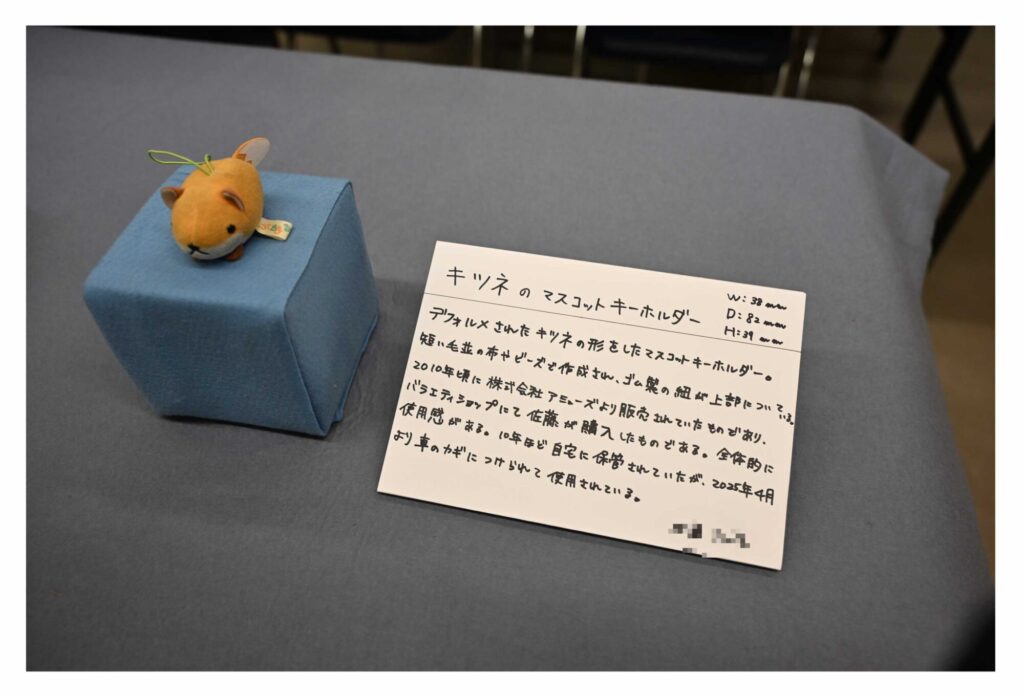 キツネの マスコットキーホルダー
W: 38mm
D: 82mm
H: 39mm
デフォルメされたキツネの形をしたマスコットキーホルダー。
短い毛並の布やビーズで作成され、ゴム製の紐が上部についている。
2010年頃に株式会社アミューズより販売されていたものであり、
バラエティショップにて佐藤が購入したものである。全体的に
使用感がある。10年ほど自宅に保管されていたが、2025年4月
より車のカギにつけられて使用されている。